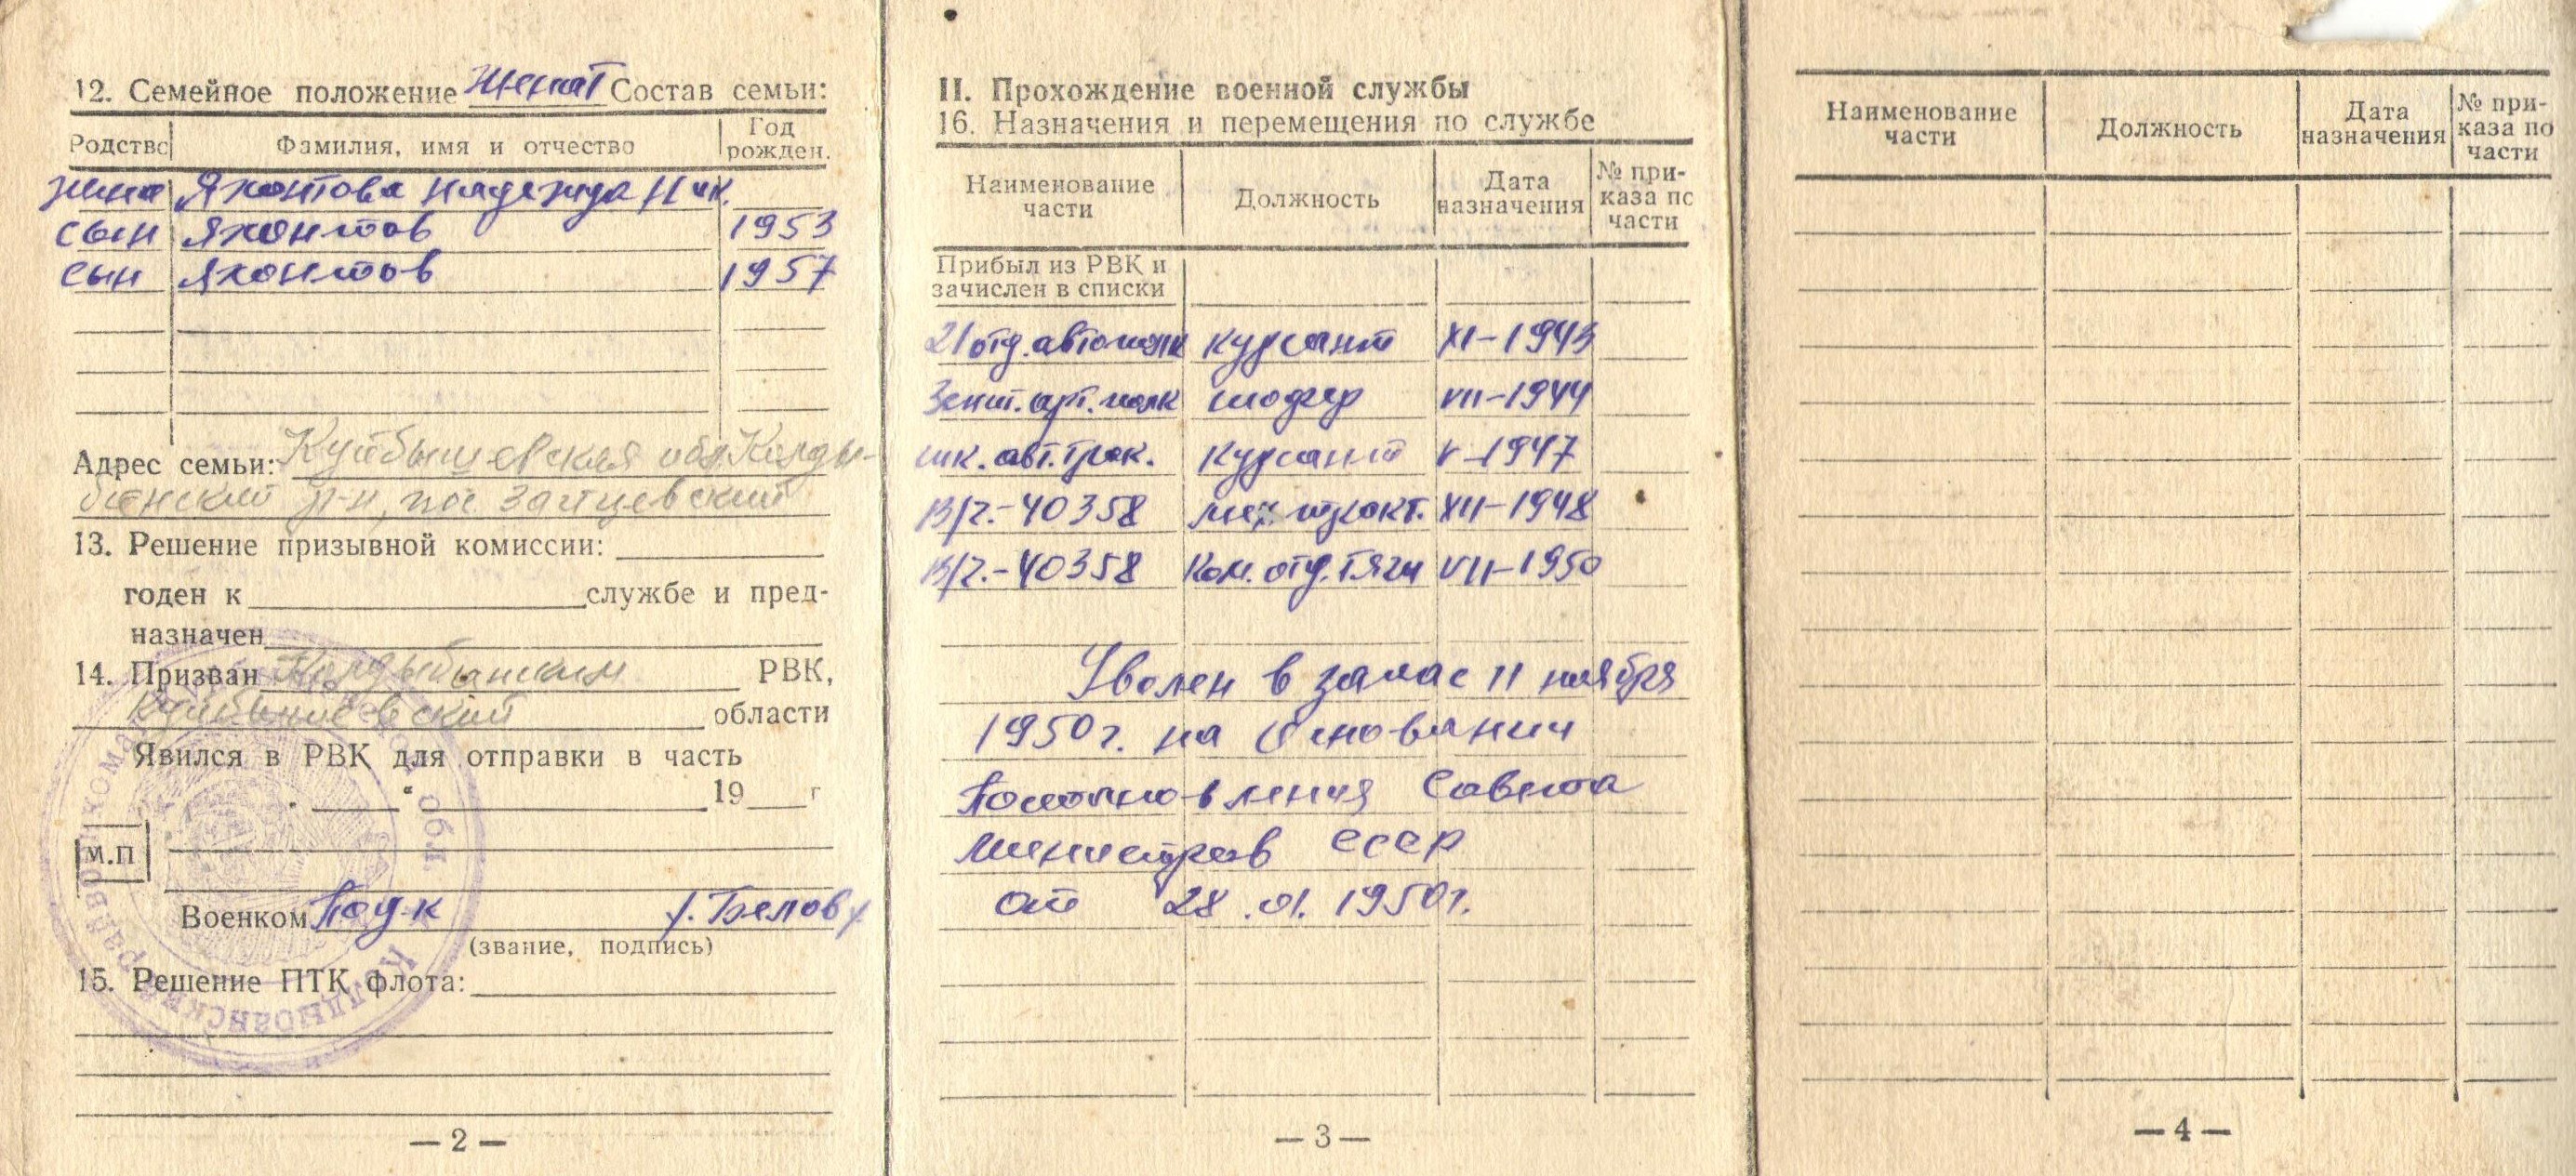 12. Семейное положение женат Состав семьи:
Родство Фамилия, имя и отчество Год рожден.
жена Яхонтова Надежда Ник.
сын Яхонтов 1953
сын Яхонтов 1957
Адрес семьи: Куйбышевская обл. Колды-
банский р-н, пос. Зайцевский
13. Решение призывной комиссии:
годен к службе и пред-
назначен
14. Призван Колдыбанским РВК,
Куйбышевский области
Явился в РВК для отправки в часть
" " 19 г
М.П
Военком Подп-к /. Белов/
(звание, подпись)
15. Решение ПТК флота:
— 2 —
II. Прохождение военной службы
16. Назначения и перемещения по службе
Наименование части Должность Дата назначения № при-каза по части
Прибыл из РВК и
зачислен в списки
21 отд. автополк курсант XI-1943
Зенит. арт. полк шофер VII-1944
шк. авт. трак. курсант V-1947
В/ч.-40358 мех. тракт. XII-1948
В/ч.-40358 Ком. отд. тяги VII-1950
Уволен в запас 11 ноября
1950 г. на основании
Постановления Совета
Министров СССР
от 28.01.1950 г.
— 3 —
Наименование части Должность Дата назначения № при-каза по части
— 4 —